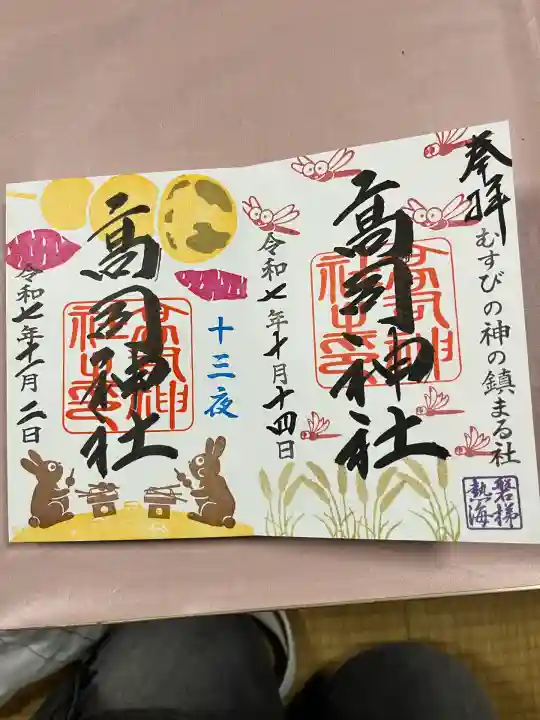 奉拝
むすびの神の鎮まる社
磐梯
熱海
髙司神社
高司神
社之印
令和七年十月十四日
十三夜
髙司神社
高司神
社之印
令和七年十一月二日